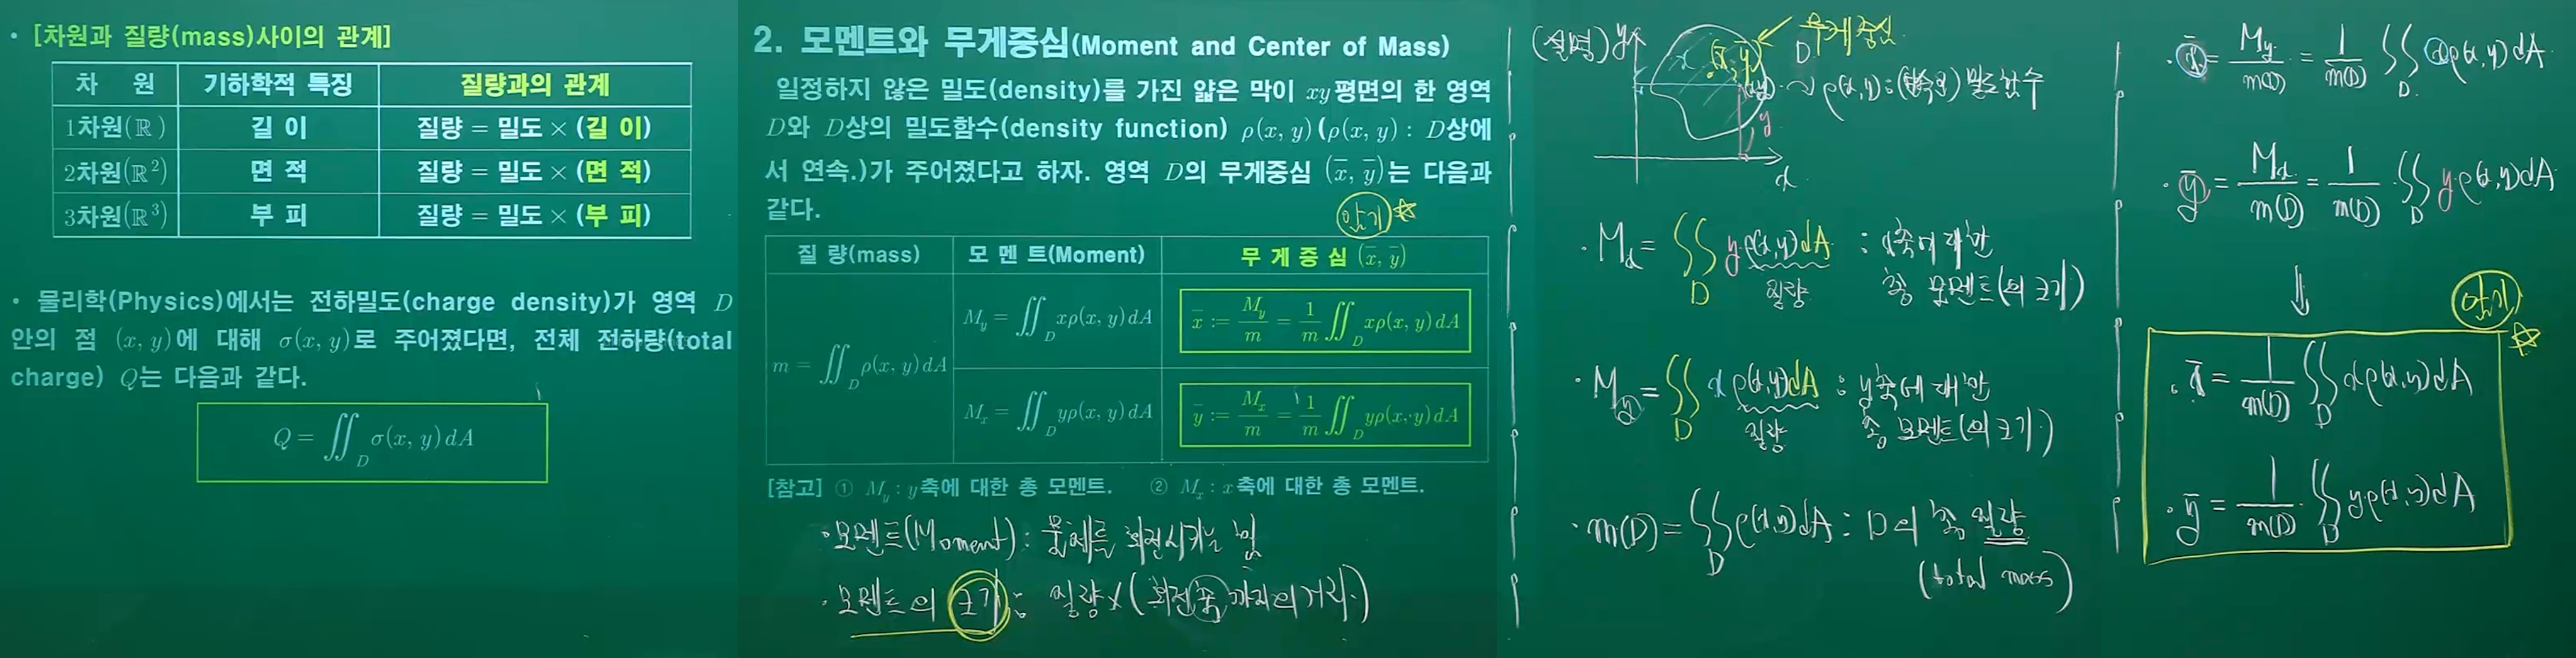 • [차원과 질량(mass)사이의 관계]
차 원 기하학적 특징 질량과의 관계
1차원(ℝ) 길 이 질량 = 밀도 × (길 이)
2차원(ℝ²) 면 적 질량 = 밀도 × (면 적)
3차원(ℝ³) 부 피 질량 = 밀도 × (부 피)
• 물리학(Physics)에서는 전하밀도(charge density)가 영역 D
안의 점 (x, y)에 대해 σ(x, y)로 주어졌다면, 전체 전하량(total
charge) Q는 다음과 같다.
Q = ∬_D σ(x, y) dA
2. 모멘트와 무게중심(Moment and Center of Mass)
일정하지 않은 밀도(density)를 가진 얇은 막이 xy평면의 한 영역
D와 D상의 밀도함수(density function) ρ(x, y)(ρ(x, y) : D상에
서 연속.)가 주어졌다고 하자. 영역 D의 무게중심 (x̄, ȳ)는 다음과
같다.
암기 ☆
질 량(mass) 모 멘 트(Moment) 무 게 중 심 (x̄, ȳ)
m = ∬_D ρ(x, y) dA
M_y = ∬_D xρ(x, y) dA
x̄ := M_y/m = 1/m ∬_D xρ(x, y) dA
M_x = ∬_D yρ(x, y) dA
ȳ := M_x/m = 1/m ∬_D yρ(x, y) dA
[참고] ① M_y : y축에 대한 총 모멘트. ② M_x : x축에 대한 총 모멘트.
· 모멘트(Moment) : 물체를 회전시키는 힘
· 모멘트의 크기 : 질량 × (회전축까지의 거리.)
(설명) y
무게중심
(x̄, ȳ)
D
(x, y) ρ(x, y) : 밀도함수
y
x
· M_x = ∬_D yρ(x, y)dA : x축에 대한
질량 총 모멘트(의 크기)
· M_y = ∬_D xρ(x, y)dA : y축에 대한
질량 총 모멘트(의 크기.)
· m(D) = ∬_D ρ(x, y)dA : D의 총 질량
(total mass)
· x̄ = M_y/m(D) = 1/m(D) ∬_D xρ(x, y)dA
· ȳ = M_x/m(D) = 1/m(D) ∬_D yρ(x, y)dA
⇓
암기 ☆
· x̄ = 1/m(D) ∬_D xρ(x, y)dA
· ȳ = 1/m(D) ∬_D yρ(x, y)dA